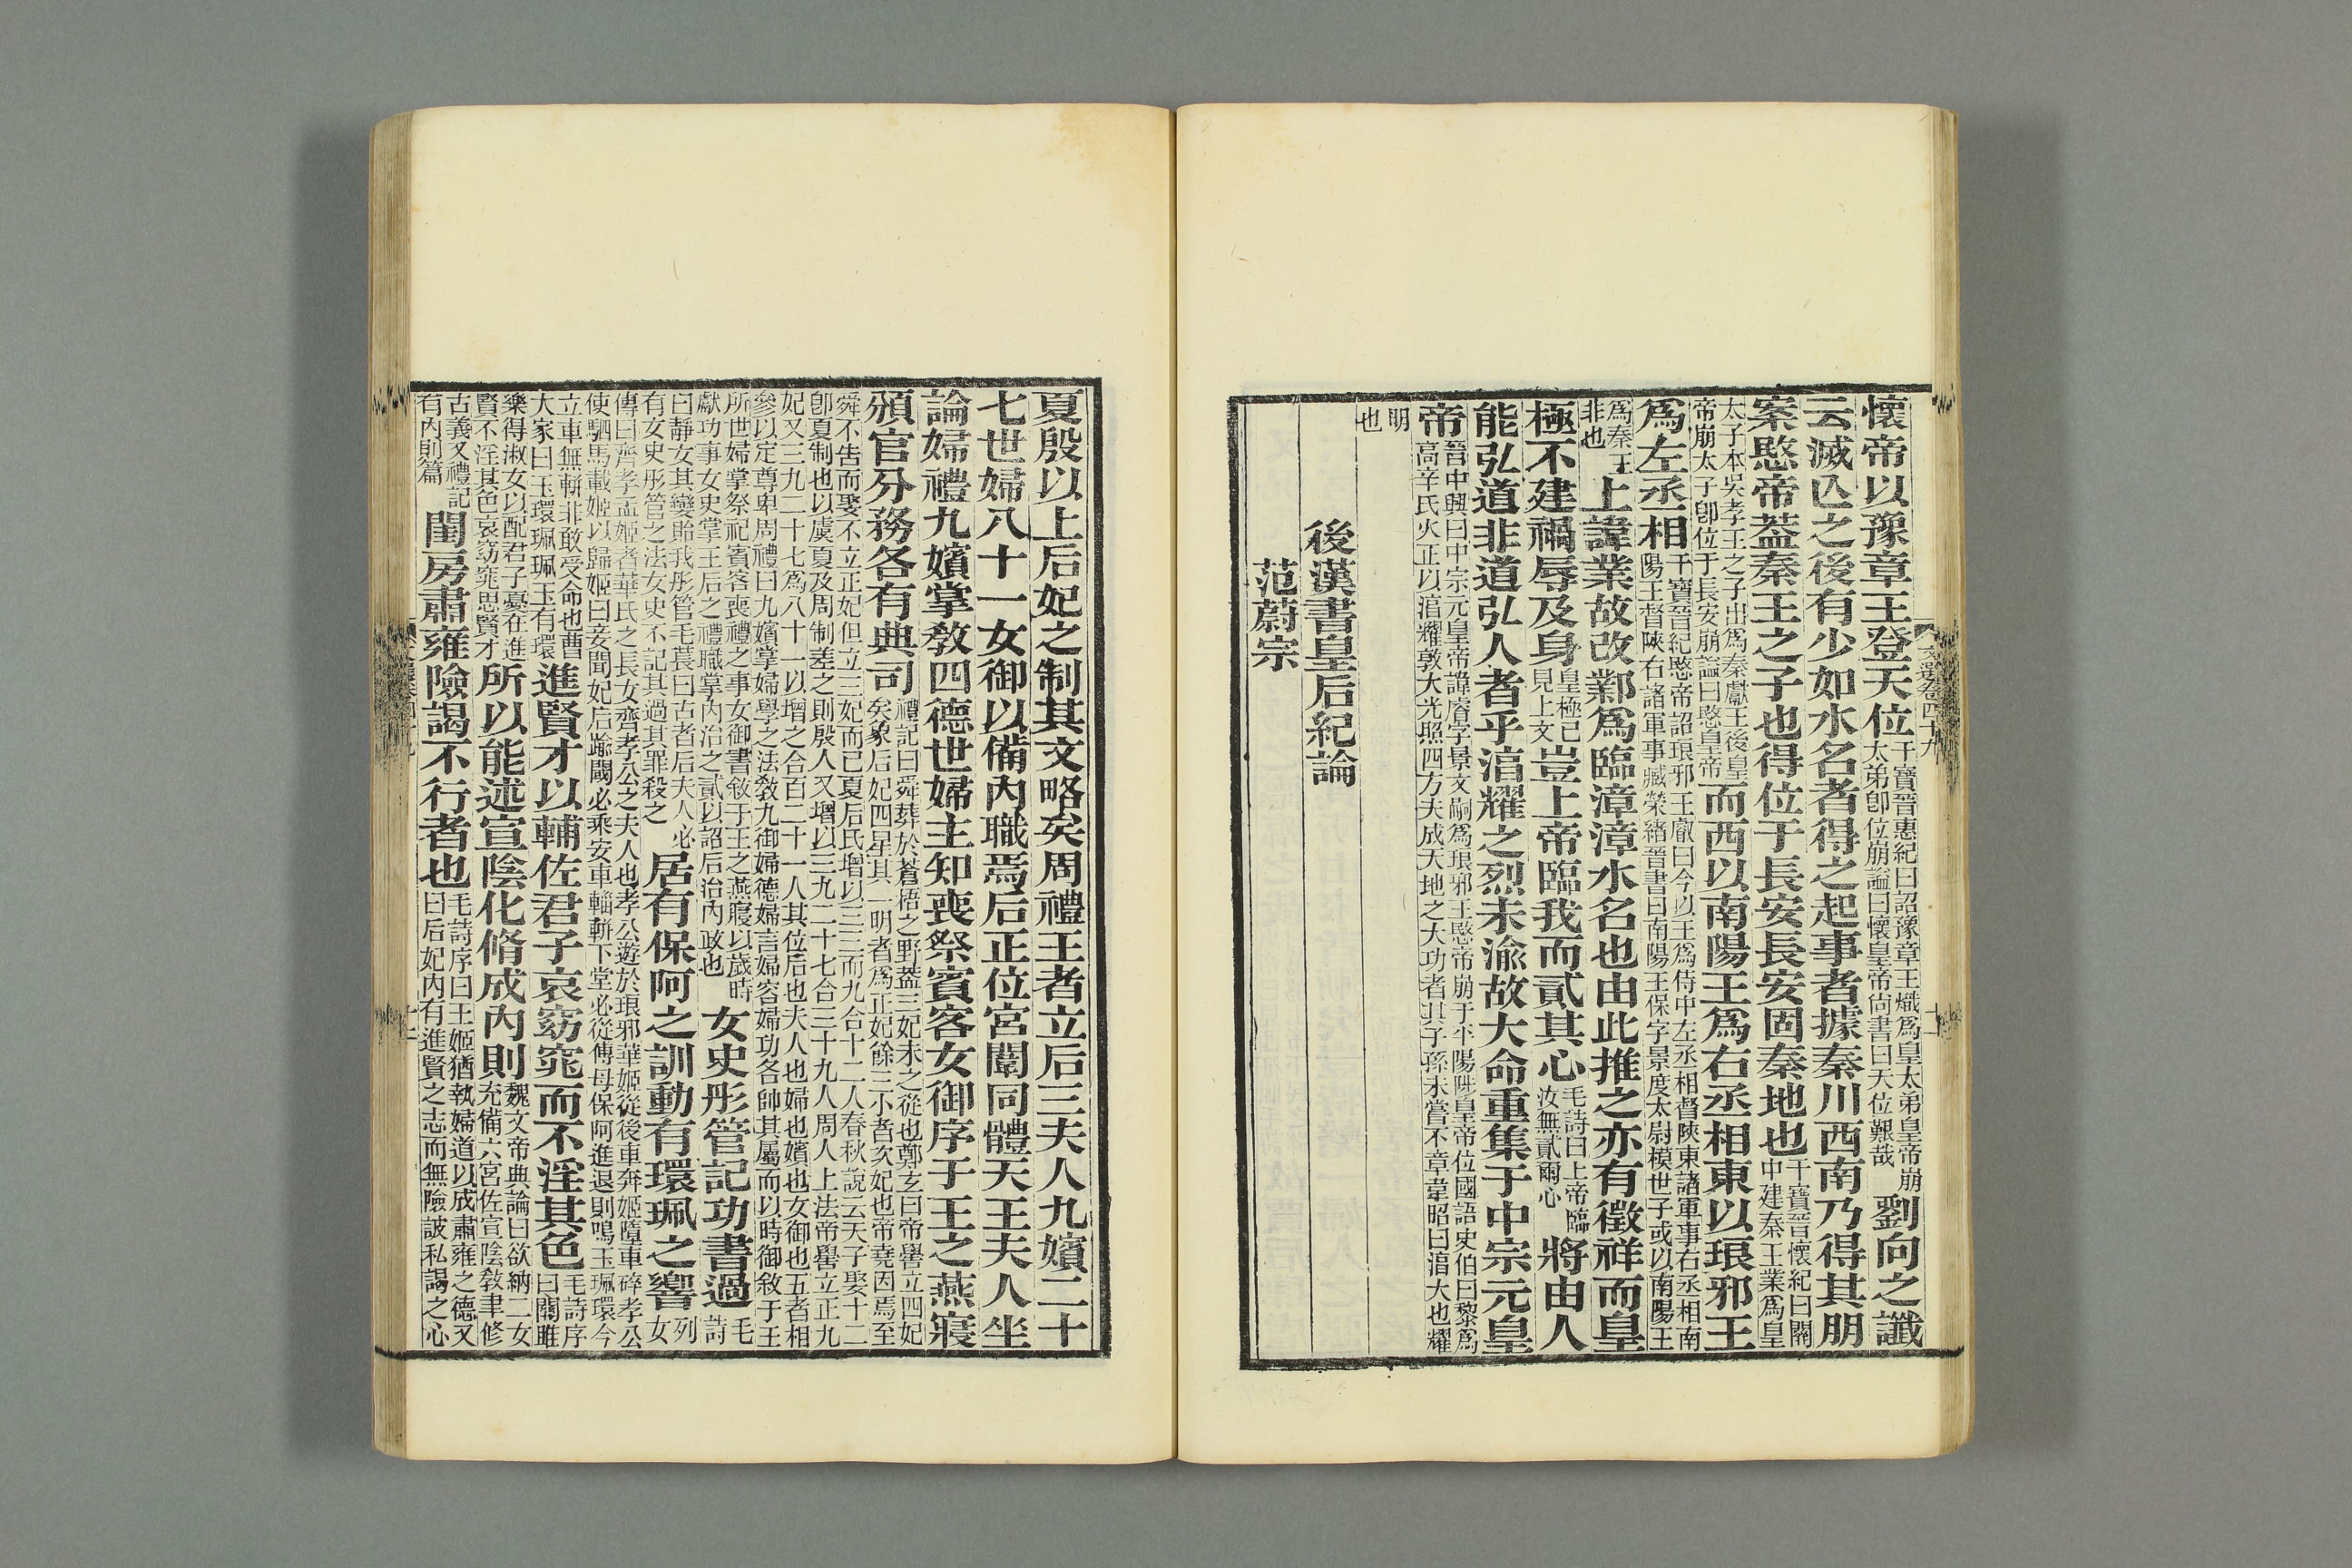 懷帝以豫章王登天位干寶晉惠紀曰詔豫章王熾爲皇太弟皇帝崩太弟卽位崩謚曰懷皇帝尙書曰天位艱哉劉向之讖
云滅亾之後有少如水名者得之起事者據秦川西南乃得其朋
案愍帝葢秦王之子也得位于長安長安固秦地也干寶晉懷紀曰關中建秦王業爲皇
太子本吳孝王之子出爲秦獻王後皇帝崩太子卽位于長安崩謚曰愍皇帝而西以南陽王爲右丞相東以琅邪王
爲左丞相干寶晉紀愍帝詔琅邪王叡曰今以王爲侍中左丞相督陝東諸軍事右丞相南陽王督陝右諸軍事臧榮緒晉書曰南陽王保字景度太尉模世子或以南陽王
爲秦王非也上諱業故改鄴爲臨漳漳水名也由此推之亦有徵祥而皇
極不建禍辱及身皇極已見上文豈上帝臨我而貳其心毛詩曰上帝臨汝無貳爾心將由人
能弘道非道弘人者乎淯耀之烈未渝故大命重集于中宗元皇
帝晉中興曰中宗元皇帝諱睿字景文嗣爲琅邪王愍帝崩于平陽陟皇帝位國語史伯曰黎爲高辛氏火正以淯耀敦大光照四方夫成天地之大功者其子孫未嘗不章韋昭曰淯大也耀
明也
後漢書皇后紀論
范蔚宗
文選卷四十九
十一
夏殷以上后妃之制其文略矣周禮王者立后三夫人九嬪二十
七世婦八十一女御以備內職焉后正位宮闈同體天王夫人坐
論婦禮九嬪掌敎四德世婦主知喪祭賓客女御序于王之燕寢
頒官分務各有典司禮記曰舜葬於蒼梧之野葢三妃未之從也鄭玄曰帝嚳立四妃矣象后妃四星其一明者爲正妃餘三小者次妃也帝堯因焉至
舜不吿而娶不立正妃但立三妃而已夏后氏增以三三而九合十二人春秋說云天子娶十二卽夏制也以虞夏及周制差之則殷人又增以三九二十七合三十九人周人上法帝嚳立正九
妃又三九二十七爲八十一以增之合百二十一人其位后也夫人也婦也嬪也女御也五者相參以定尊卑周禮曰九嬪掌婦學之法敎九御婦德婦言婦容婦功各帥其屬而以時御敘于王
所世婦掌祭祀賓客喪禮之事女御書敘于王之燕寢以歲時獻功事女史掌王后之禮職掌內治之貳以詔后治內政也女史彤管記功書過毛詩
曰靜女其孌貽我彤管毛萇曰古者后夫人必有女史彤管之法女史不記其過其罪殺之居有保阿之訓動有環珮之響列女
傳曰齊孝孟姬者華氏之長女齊孝公之夫人也孝公遊於琅邪華姬從後車奔姬墮車碎孝公使駟馬載姬以歸姬曰妾聞妃后踰閾必乘安車輜軿下堂必從傅母保阿進退則鳴玉珮環今
立車無軿非敢受命也曹大家曰玉環珮珮玉有環進賢才以輔佐君子哀窈窕而不淫其色毛詩序曰關雎
樂得淑女以配君子憂在進賢不淫其色哀窈窕思賢才所以能述宣陰化脩成內則魏文帝典論曰欲納二女充備六宮佐宣陰敎聿修
古義又禮記有內則篇閨房肅雍險謁不行者也毛詩序曰王姬猶執婦道以成肅雍之德又曰后妃內有進賢之志而無險詖私謁之心